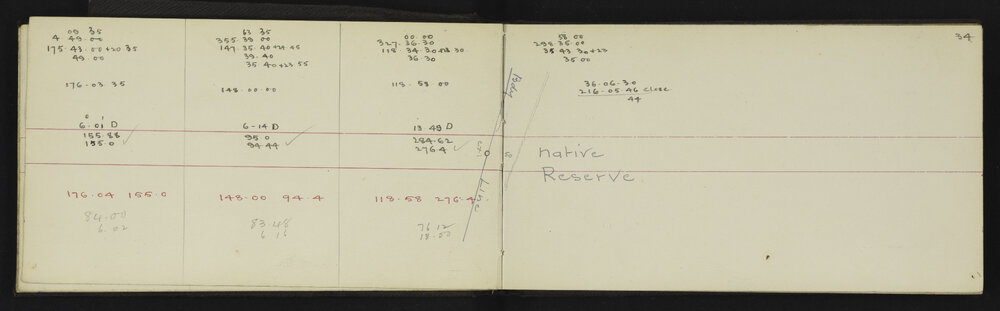 09 35
4 49.00
175.43.00+20 35
49.00
176.03 35
6.01 D
155.88
155.0
176.04 155.0
84.00
6.02
63 35
355.39 00
147.35.40+24.45
39.40
35.40+23.55
148.00.00
6-14 D
95.0
94.44
148.00 94.4
83.48
6 16
00.00
327.36.30
36.30
118.58.00
13 49 D
284.62
276.4
118.58 276.4
76 12
Bdy
Line
58 00
298.35.00
35 43 30+23
35 00
36.06.30
216.05 46 close
44
34
native
Reserve.